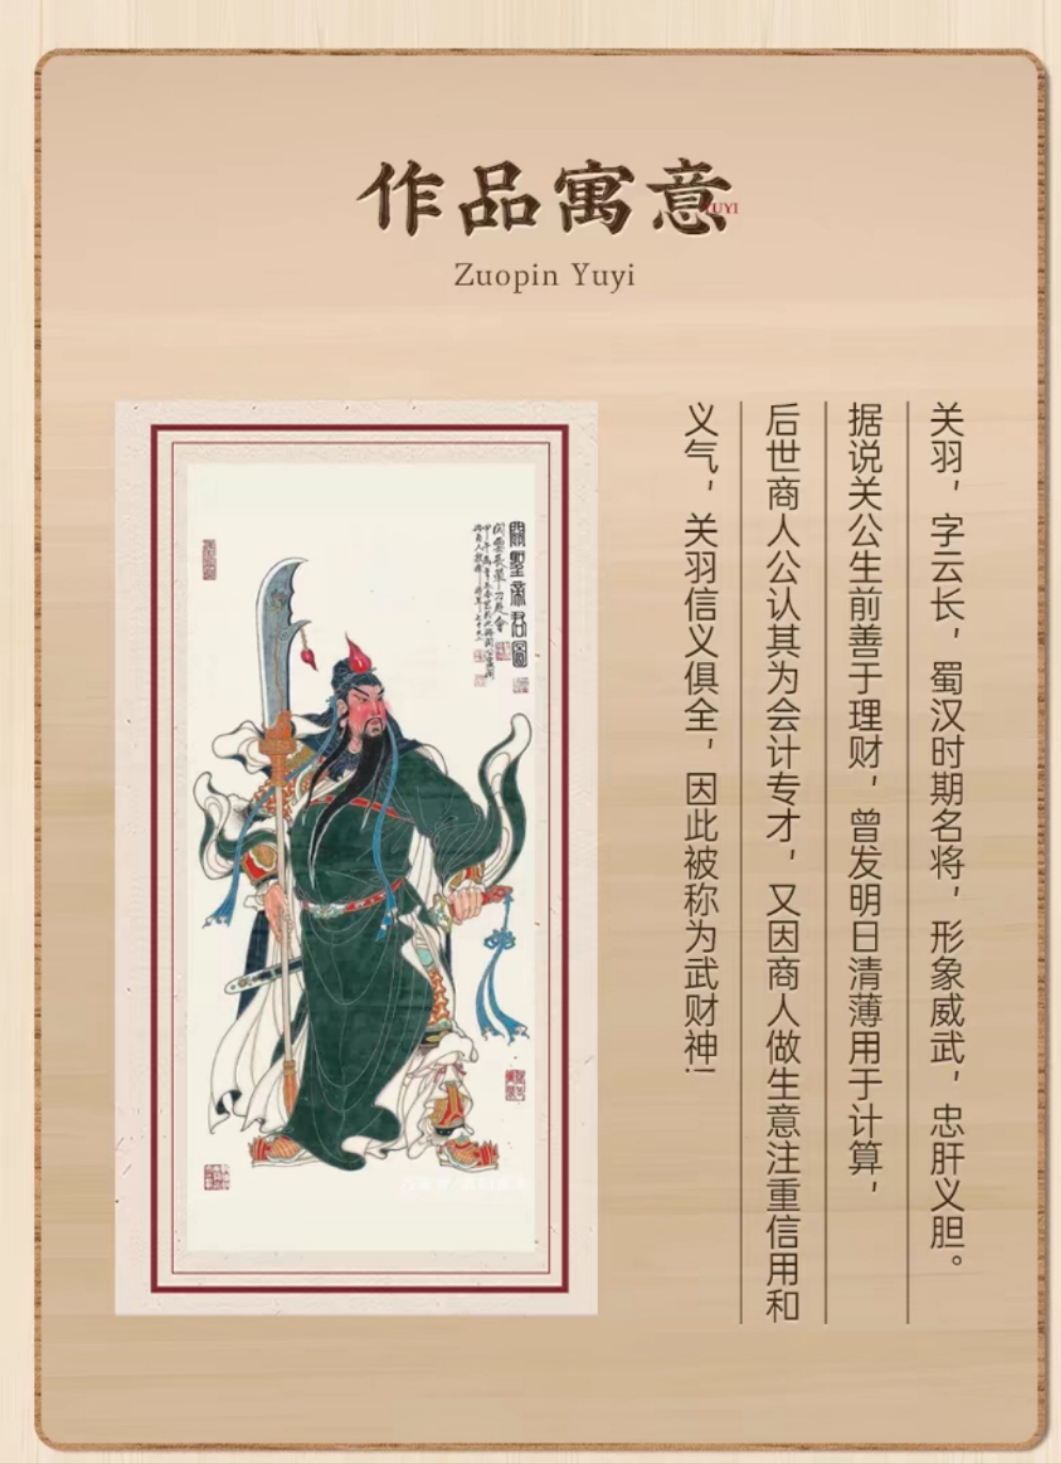 作品寓意
YUYI
Zuopin Yuyi
关羽，字云长，蜀汉时期名将，形象威武，忠肝义胆。
据说关公生前善于理财，曾发明日清薄用于计算，
后世商人公认其为会计专才，又因商人做生意注重信用和
义气，关羽信义俱全，因此被称为武财神!
關聖帝君圖